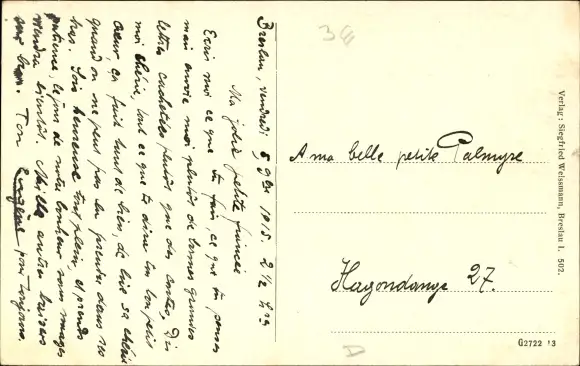 Breslau, vendredi 5 9bre 1915. 2 1/2 hrs
Ma jolie petite fiancée
Ecris moi ce que tu fais, ce que tu penses
mais envoie moi plutôt de bonnes grandes
lettres cachetées plutôt que des cartes. Dis
moi chérie, tout ce que te dira ton bon petit
coeur, ça fait tant de bien, de lire sa chérie
quand on ne peut pas la prendre dans ses
bras. Sois heureuse tout plein, et prends
patience, le jour de notre bonheur sans nuages
viendra bientôt. Mille autres baisers
Ton Eugène pour toujours.
A ma belle petite Palmyre
Hagondange 27.
Verlag: Siegfried Weissmann, Breslau I. 502.
G2722 13